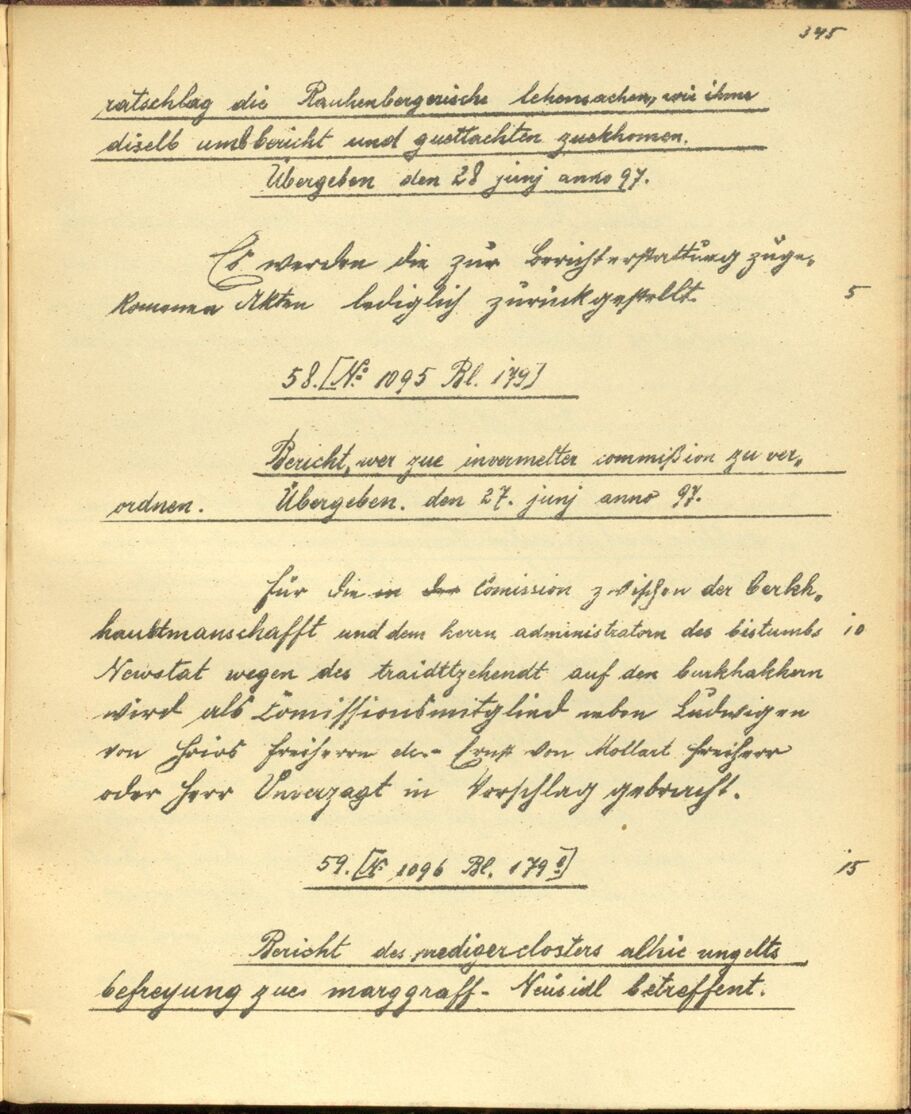 345
ratschlag die Rauhenbergerische lehensachen, wie ihme
diselb umb bericht und guettachten zuekhomen.
Übergeben den 28 junj anno 97.
Es werden die zur Berichterstattung zuge-
komenen Akten lediglich zurückgestellt.
5
58. [No 1095 Bl. 179]
Bericht, wer zue invermelter commißion zu ver-
ordnen. Übergeben. den 27. junj anno 97.
Für die in der Comission zwischen der berkh-
haubtmanschafft und dem herrn administratorn des bistumbs
10
Newstat wegen des traidttzehendt auf den burkhakhern
wird als Comissionsmitglied neben Ludwigen
von Hoios freiherrn Ernst von Mollart freiherr
oder Herr Unverzagt in Vorschlag gebracht.
59. [No 1096 Bl. 179]
15
Bericht des predigerclosters alhie ungelts
befreyung zues marggraff- Neusidl betreffent.